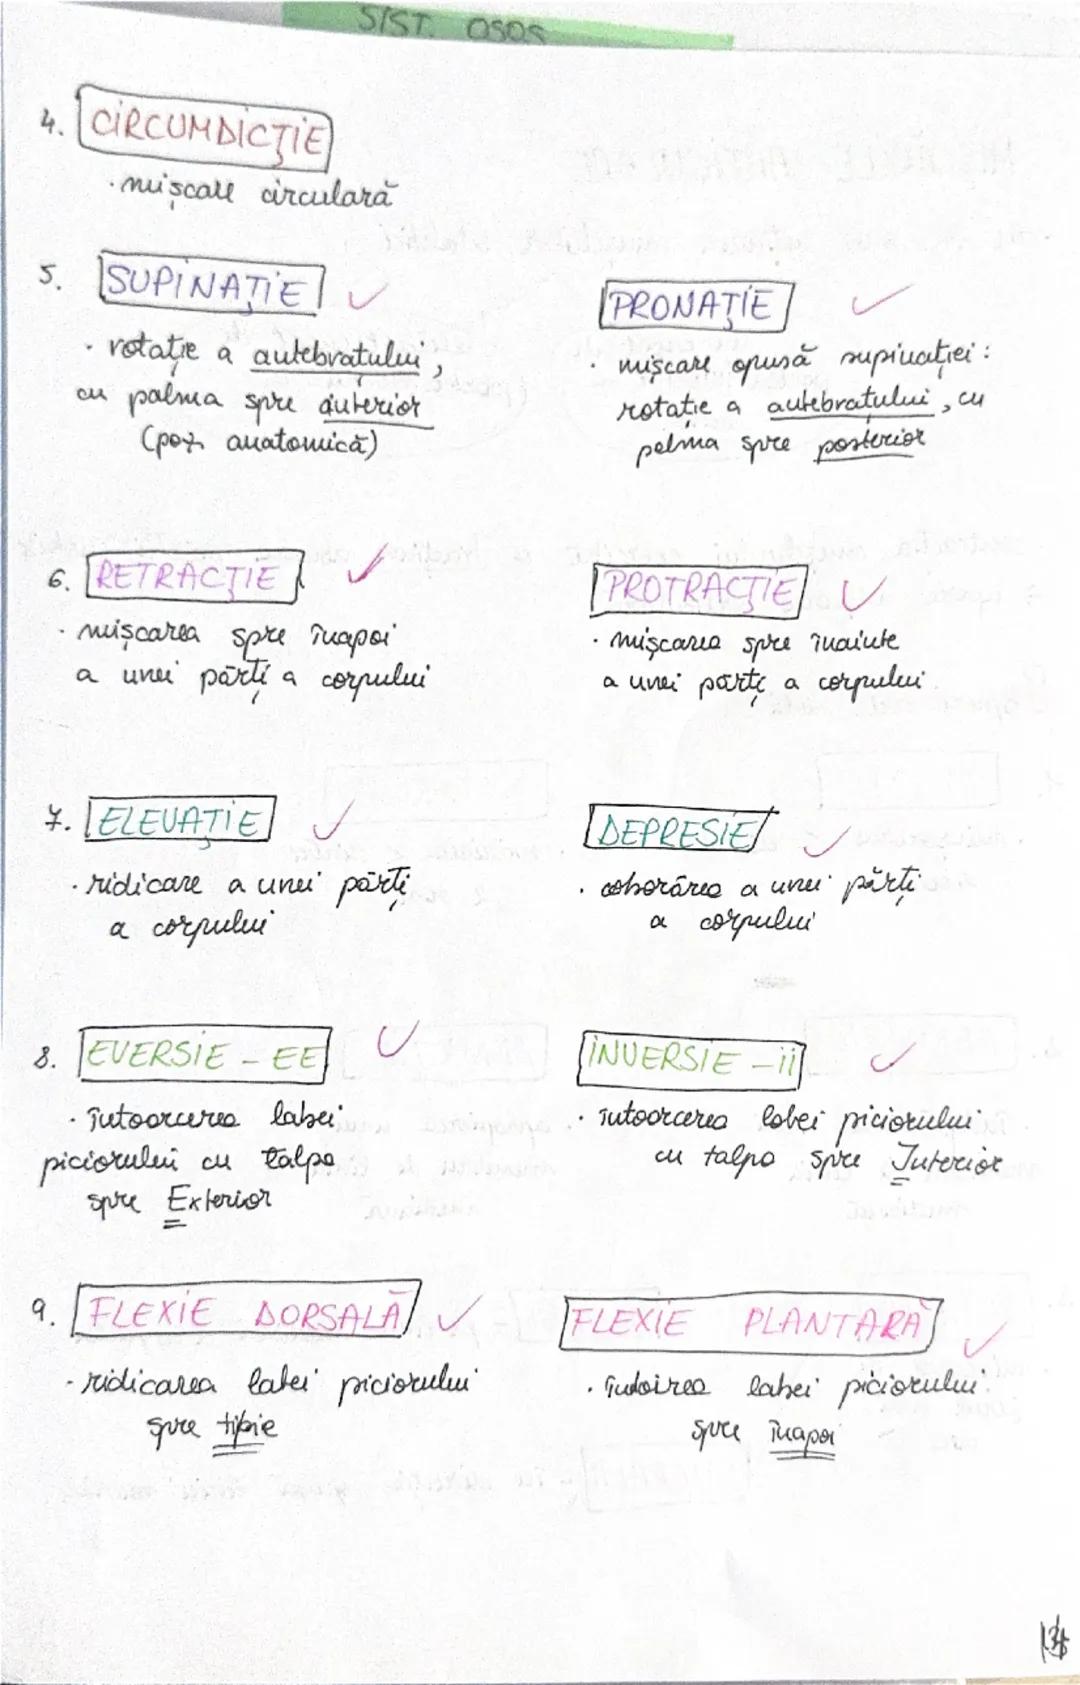 SIST. OSOS
4. CIRCUMDICȚIE
· mișcare circulară
5. SUPINAȚIE
· rotație a antebratului,
cu palma spre anterior
(poz. anatomică)
PRONAȚIE
· mișcare opusă supinației:
rotatie a antebratului, cu
palma spre posterior
6. RETRACȚIE
· mișcarea spre înapoi
a unei părți a corpului
PROTRACȚIE
· mișcarea spre înainte
a unei părți a corpului
7. ELEVAȚIE
· ridicare a unei părți
a corpului
DEPRESIE
· coborârea a unei părți
a corpului
8. EVERSIE - EE
· întoarcerea labei
piciorului cu talpa
spre Exterior
INVERSIE - ii
· întoarcerea labei piciorului
cu talpa spre Interior
9. FLEXIE DORSALĂ
· ridicarea labei piciorului
spre tibie
FLEXIE PLANTARĂ
· îndoirea labei piciorului
spre înapoi